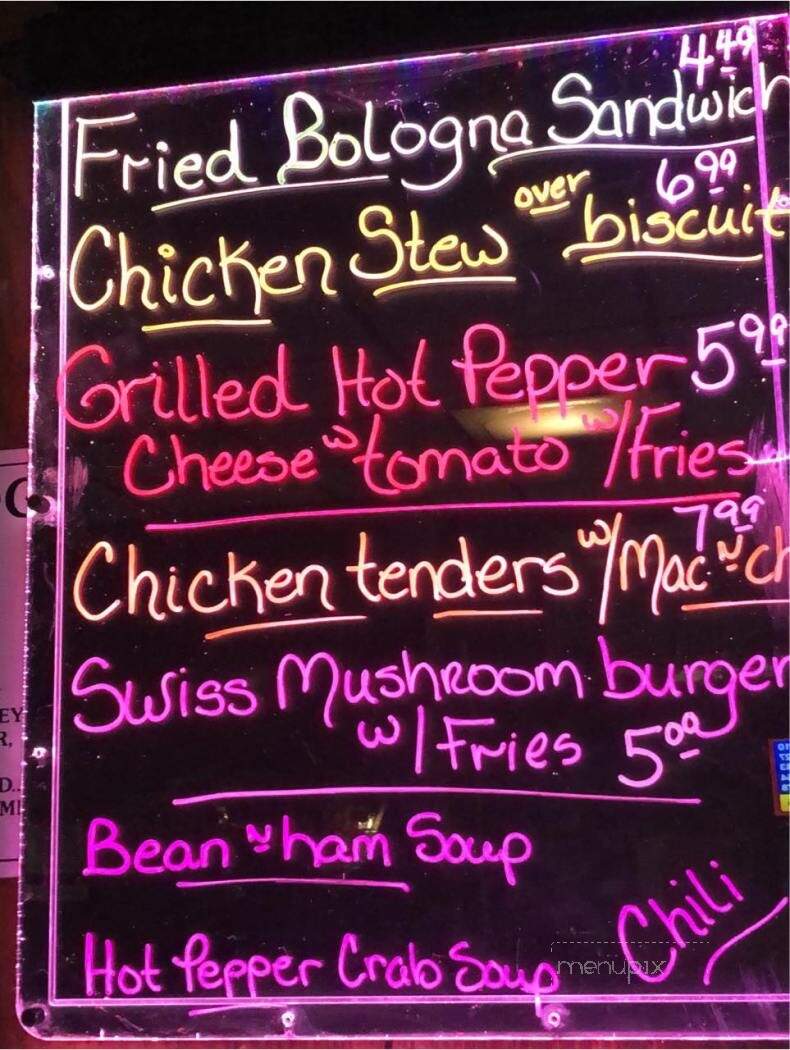 4.49
Fried Bologna Sandwich
6.99
Chicken Stew over biscuit
Grilled Hot Pepper 5.99
Cheese w tomato w/Fries
7.99
Chicken tenders w/Mac n ch
Swiss Mushroom burger
w/Fries 5.00
Bean n ham Soup
Chili
Hot Pepper Crab Soup
menupix